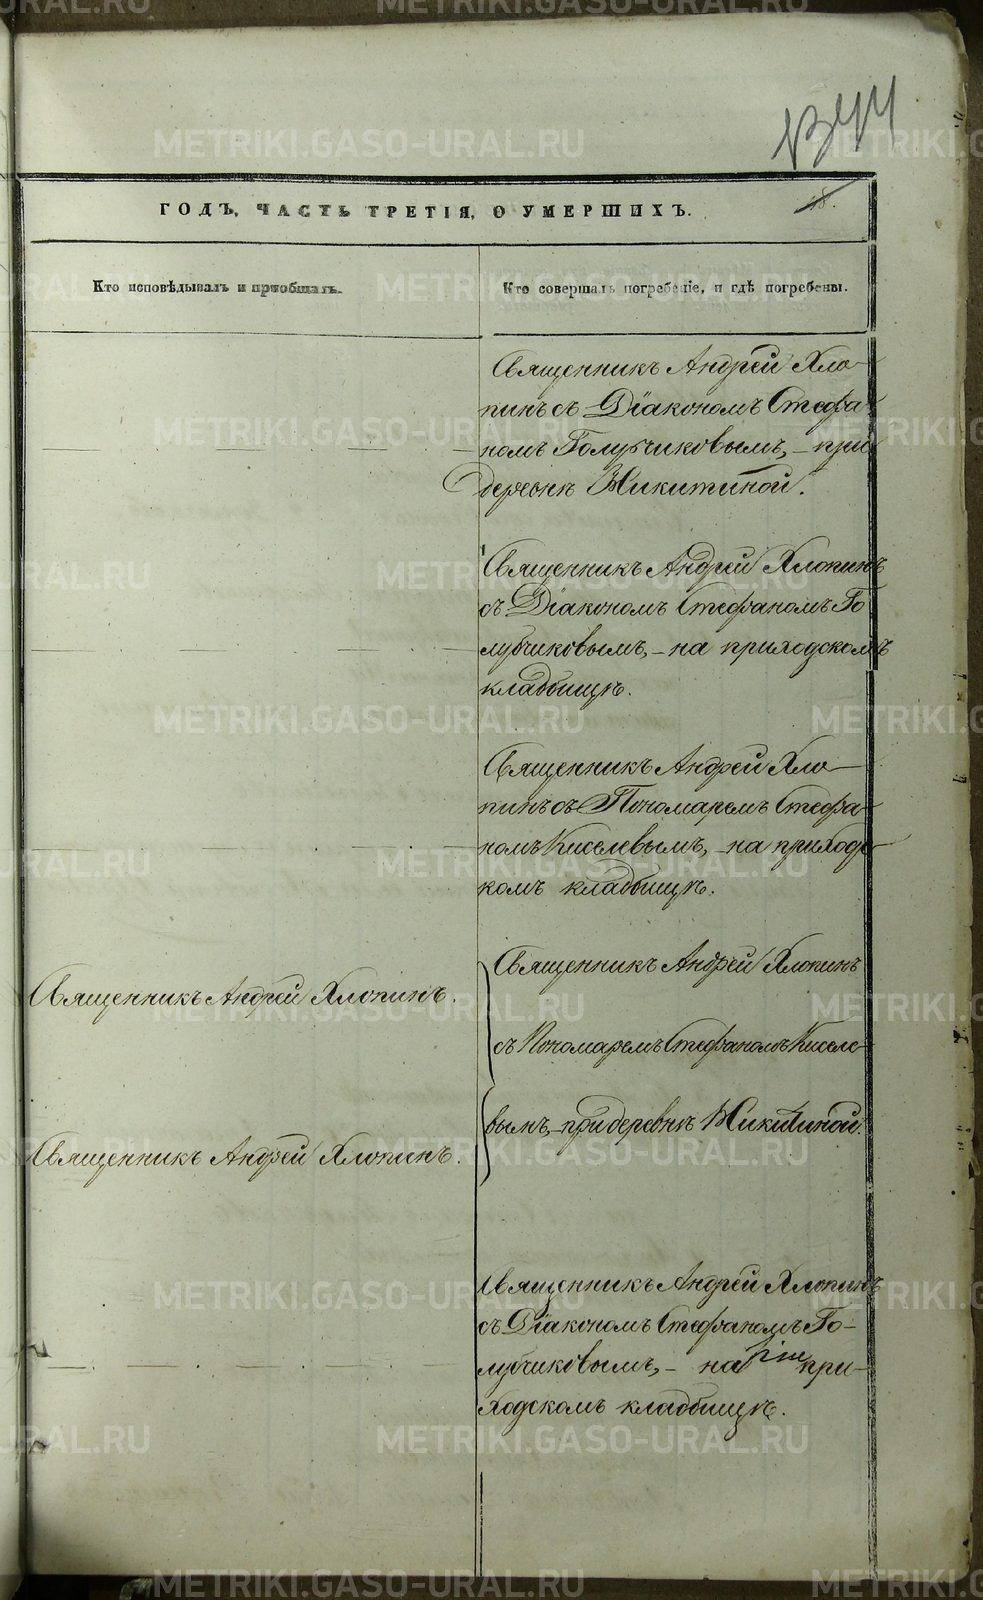 ГОДЪ, ЧАСТЬ ТРЕТІЯ, О УМЕРШИХЪ.
48.
Кто исповѣдывалъ и пріобщалъ.
Кто совершалъ погребеніе, и гдѣ погребены.
Священникъ Андрей Хло
пинъ съ Діакономъ Стефа
номъ Голубчиковымъ, – при
деревнѣ Никитиной.
Священникъ Андрей Хлопинъ
съ Діакономъ Стефаномъ Го
лубчиковымъ, – на приходскомъ
кладбищѣ.
Священникъ Андрей Хло–
пинъ съ Пономаремъ Стефа–
номъ Киселевымъ, – на приходс–
комъ кладбищѣ.
Священникъ Андрей Хлопинъ.
Священникъ Андрей Хлопинъ
съ Пономаремъ Стефаномъ Киселе–
вымъ, – при деревнѣ Никитиной.
Священникъ Андрей Хлопинъ.
Священникъ Андрей Хлопинъ
съ Діакономъ Стефаномъ Го–
лубчиковымъ, – на при–
ходскомъ кладбищѣ.
METRIKI.GASO-URAL.RU